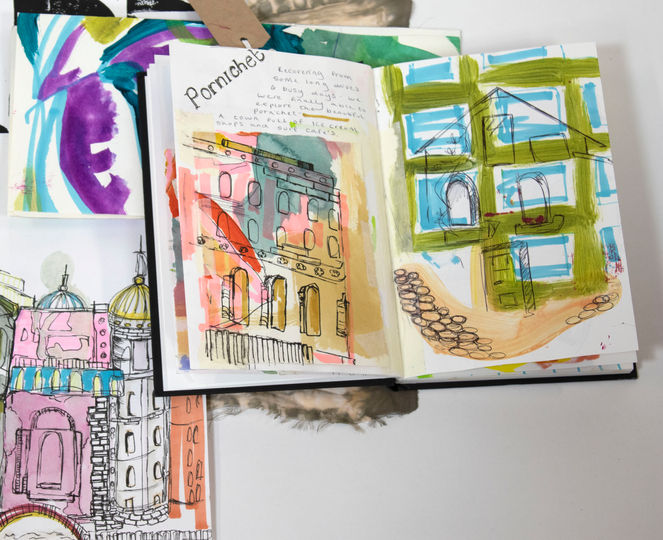 Pornichet
Recovering from
some long drives
& busy days we
were finally able to
explore the beautiful
Pornichet
A town full of Ice cream
shops and surf cafe's